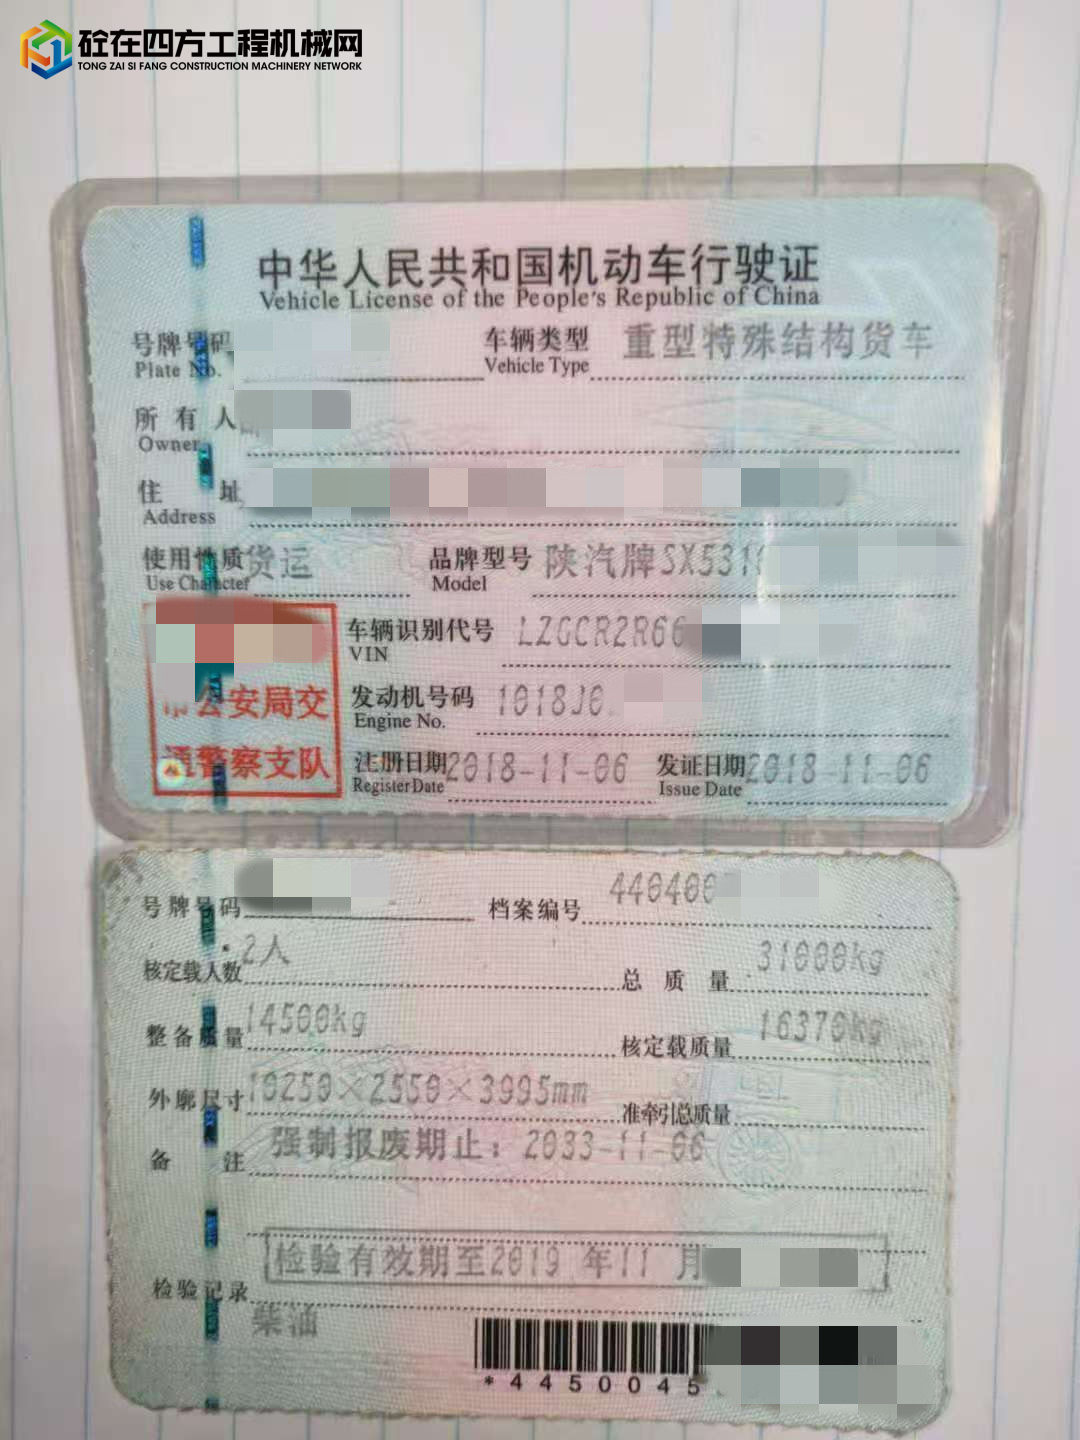 砼在四方工程机械网
TONG ZAI SI FANG CONSTRUCTION MACHINERY NETWORK
中华人民共和国机动车行驶证
Vehicle License of the People's Republic of China
号牌号码 车辆类型 重型特殊结构货车
Plate No. Vehicle Type
所有人
Owner
住址
Address
使用性质 货运 品牌型号 陕汽牌SX531
Use Character Model
车辆识别代号 LZGCR2R66
VIN
公安局交 发动机号码 1018J0
Engine No.
通警察支队 注册日期 2018-11-06 发证日期 2018-11-06
Register Date Issue Date
号牌号码 档案编号 440400
核定载人数 2人 总质量 31000kg
整备质量 14500kg 核定载质量 16370kg
外廓尺寸 10250×2550×3995mm 准牵引总质量
备注 强制报废期止：2033-11-06
检验记录 检验有效期至2019 年11 月
柴油
*4450045